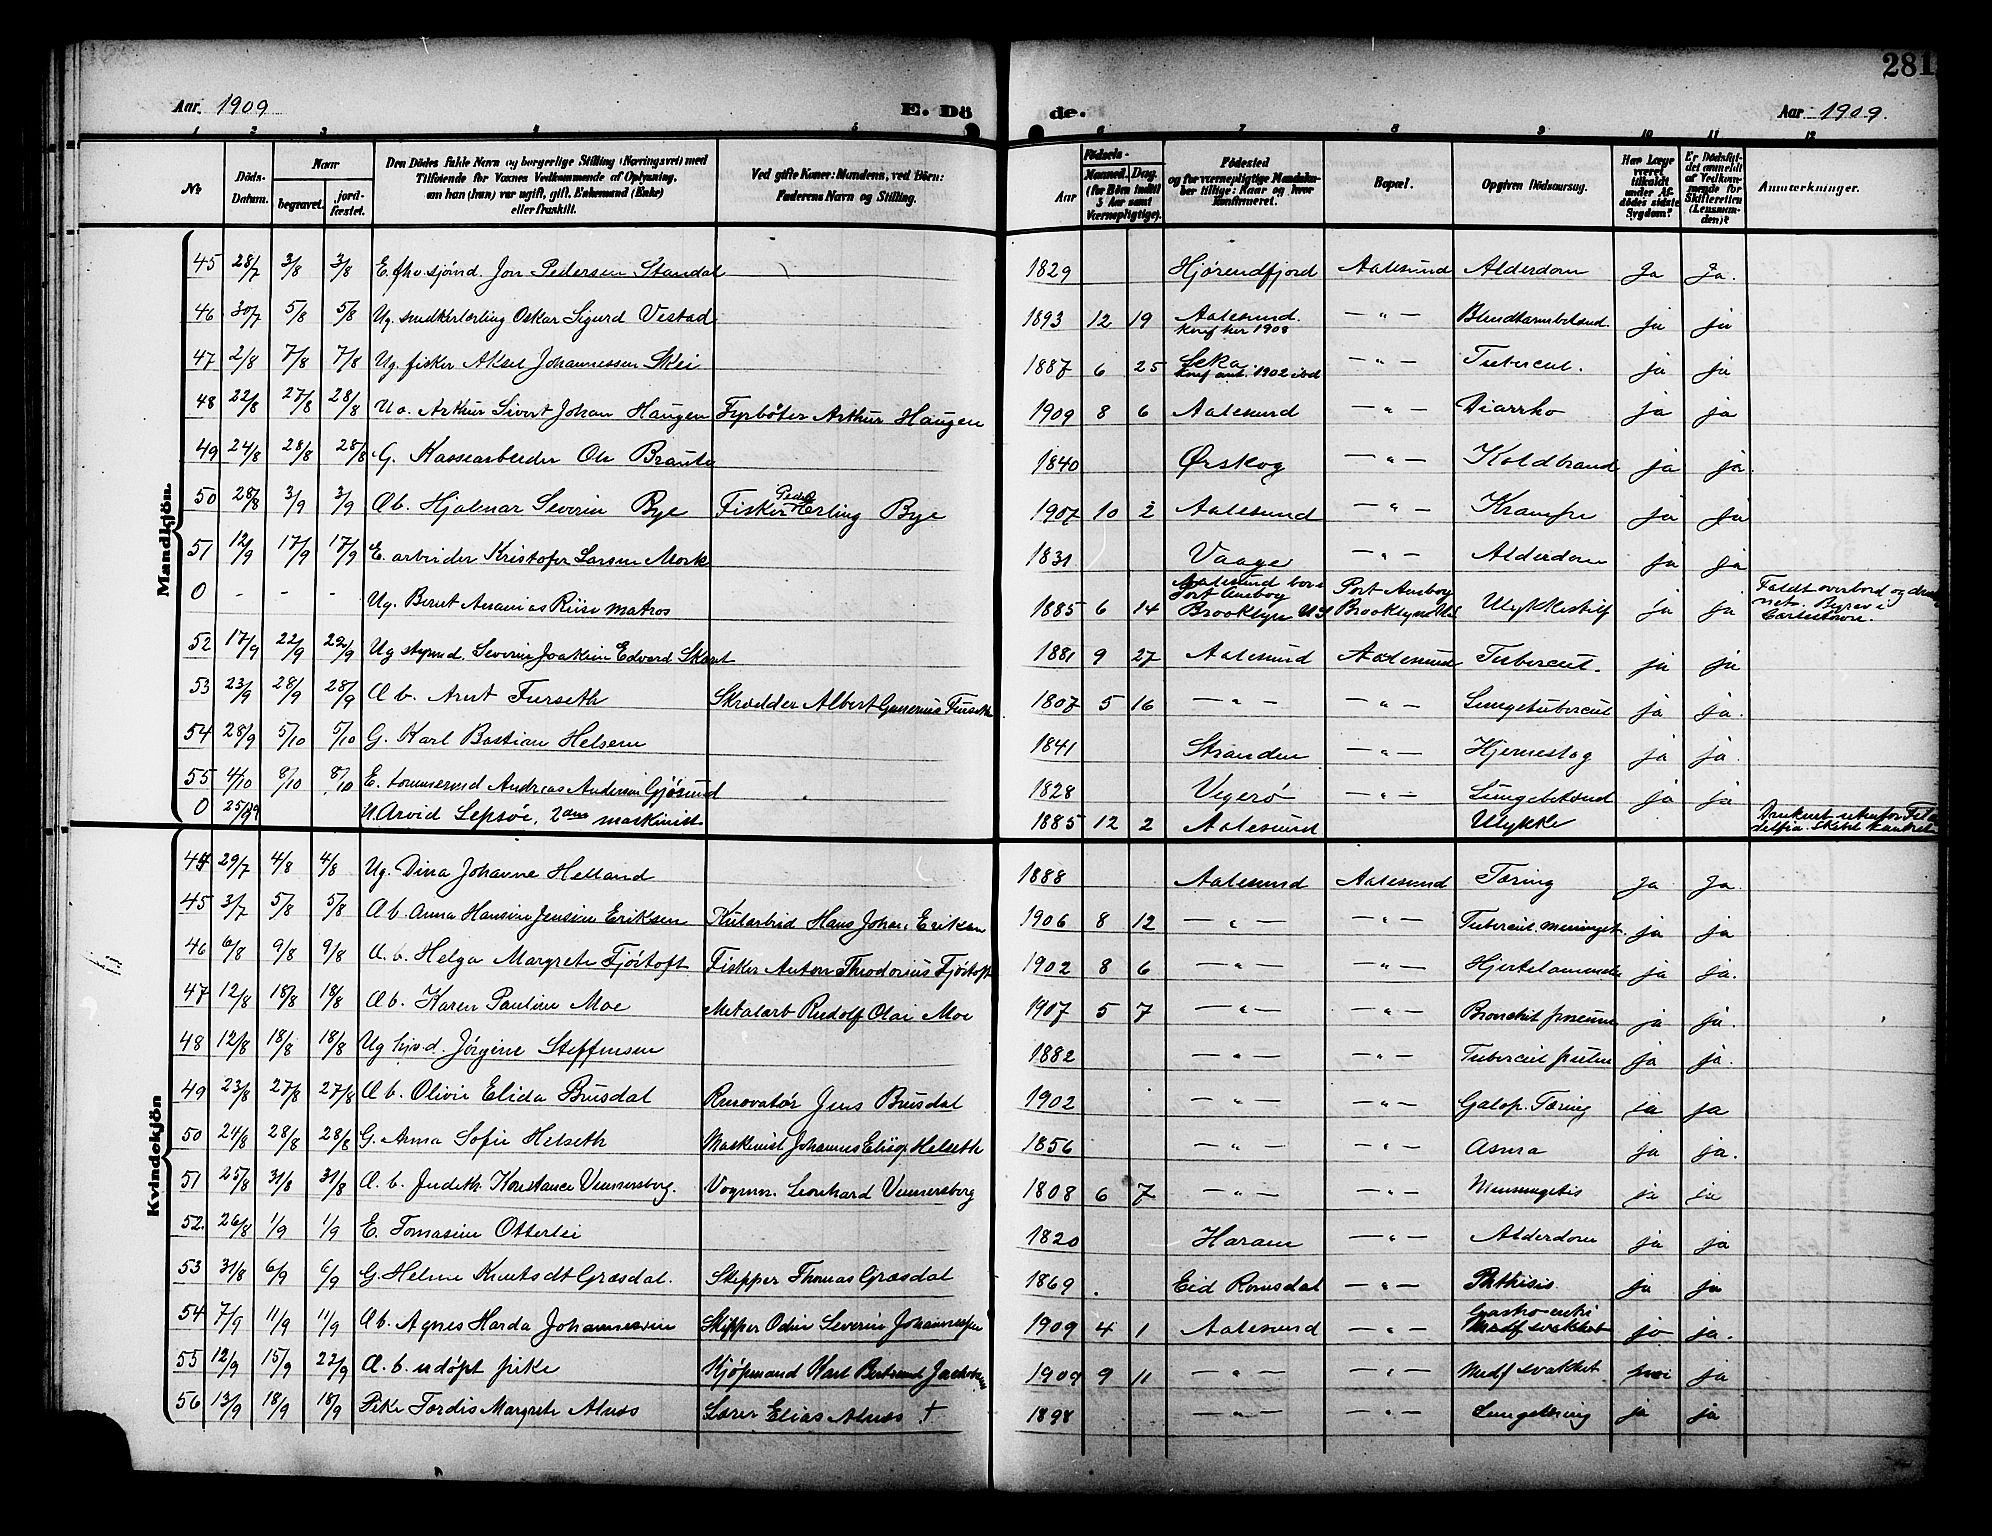 281
Aar 1909 E. Dö de. Aar 1909.
1 2 3 4 5 6 7 8 9 10 11 12
No Döds-Datum. Naar begravet. jord-fæstet. Den Dödes fulde Navn og borgerlige Stilling (Næringsvei) med Tilföiende for Voxnes Vedkommende af Oplysning, om han (hun) var ugift, gift, Enkemand (Enke) eller fraskilt. Ved gifte Koner: Mandens, ved Börn: Faderens Navn og Stilling. Födsels- Aar Maaned. Dag. (for Börn indtil 5 Aar samt Værnepligtige). Födested og for værnepligtige Mandskaber tillige: Naar og hvor Konfirmeret. Bopæl. Opgiven Dödsaarsag. Har Læge været tilkaldt under Afdödes sidste Sygdom? Er Dödsfaldet anmeldt af Vedkommende for Skifteretten (Lensmanden)? Anmærkninger.
Mandkjön.
45 28/7 3/8 3/8 E. fhv. sjömd. Jon Pedersen Standal 1829 Hjørendfjord Aalesund Alderdom Ja Ja.
46 30/7 5/8 5/8 Ug. snedkerlærling Oskar Sigurd Vestad 1893 12 19 Aalesund. konf her 1908 — " — Blindtarmbetænd. ja ja
47 2/8 7/8 7/8 Ug. fisker Aksel Johannessen Skei 1887 6 25 Leka konf 1902 — " — Tubercul. ja ja
48 22/8 27/8 28/8 Arthur Sivert Johan Haugen Fyrbøter Arthur Haugen 1909 8 6 Aalesund — " — Diarrho ja ja
49 24/8 28/8 28/8 G. Kassearbeider Ole Braute 1840 Ørskog — " — Koldbrand ja ja.
50 28/8 3/9 3/9 Æb. Hjalmar Severin Bye Fisker Peder Herling Bye 1907 10 2 Aalesund — " — Krampe ja ja
51 12/9 17/9 17/9 E. arbeider Kristofer Larsen Mork 1831 Vaage — " — Alderdom ja ja
0 - - - Ug. Bernt Ananias Riise matros 1885 6 14 Aalesund Brooklyn US Brooklyn Ulykkestilf ja ja Faldt overbord og
52 17/9 22/9 22/9 Ug styrmd. Severin Joakim Edvard Skaret 1881 9 27 Aalesund Aalesund Tubercul. ja ja
53 23/9 28/9 28/9 Æ b. Arnt Furseth Skrædder Albert Gunerius Furseth 1807 5 16 — " — — " — Lungetubercul ja ja.
54 28/9 5/10 5/10 G. Karl Bastian Helsem 1841 Stranden — " — Hjerneslag ja ja.
55 4/10 8/10 8/10 E. tommermd Andreas Andersen Gjøsund 1828 Vegerö — " — Lungebetænd ja ja
0 25/ U. Arvid Lepsöe, 2den maskinist 1885 12 2 Aalesund Ulykke
Kvindekjön
44 29/7 4/8 4/8 Ug. Dina Johanne Helland 1888 Aalesund Aalesund Tæring Ja Ja.
45 3/7 5/8 5/8 Æ b. Anna Hansine Jensine Eriksen Kularbeid Hans Johan Eriksen 1906 8 12 " — " — Tubercul. meninget. ja ja
46 6/8 9/8 9/8 Æ. b. Helga Margrete Fjörtoft Fisker Anton Theodorius Fjörtoft 1902 8 6 — " — — " — ja ja.
47 12/8 18/8 18/8 Æb. Karen Pauline Moe Metalarb Rudolf Olai Moe 1907 5 7 — " — — " — Bronchit pneum ja ja.
48 12/8 18/8 18/8 Ug Jörgine Steffensen 1882 — " — — " — Tubercul pulm ja ja.
49 23/8 27/8 27/8 Æ b. Olivie Elida Brusdal Renovatør Jens Brusdal 1902 — " — — " — Galop. Tæring ja ja
50 24/8 28/8 28/8 G. Anna Sofie Helseth Maskinist Johannes Elisæ Helseth 1856 — " — — " — Asma ja ja.
51 25/8 31/8 31/8 Æ. b. Judith Konstance Vennersberg. Vognm. Leonhard Vennersberg 1808 6 7 — " — — " — Meningetis ja ja
52. 26/8 1/9 1/9 E. Tomasine Otterlei 1820 Haram — " — Alderdom ja ja
53 31/8 6/9 6/9 G. Helene Knutsdt Græsdal. Skipper Thomas Græsdal 1869 Eid Romsdal — " — Phthisis ja ja
54 7/9 11/9 11/9 Æb. Agnes Harda Johannessen Skipper Odin Severin Johannessen 1909 4 1 Aalesund — " — Medf svakhet ja ja.
55 12/9 15/9 22/9 Æ. b. udöpt pike Kjöpmand Karl Bertrand 1909 9 11 — " — — " — Medf svakhet nei ja
56 13/9 18/9 18/9 Pike Tordis Margrete Alnæs Lærer Elias Alnæs † 1898 — " — — " — Lungetæring ja ja